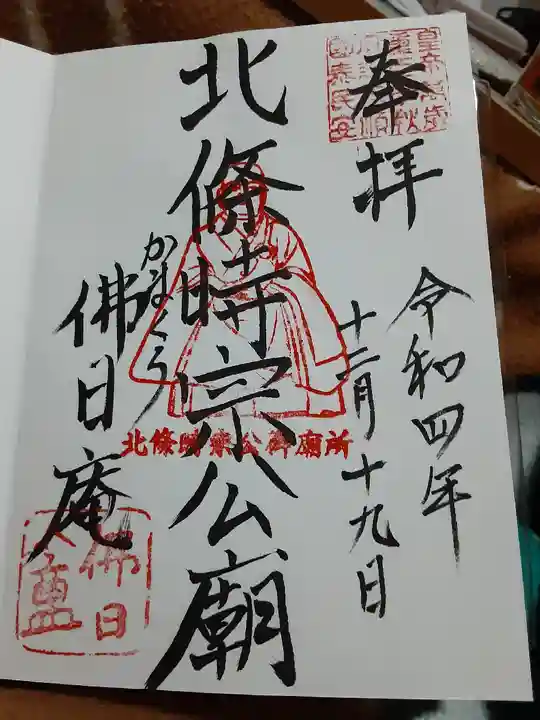 奉拝
令和四年
十二月十九日
北條時宗公廟
かまくら
佛日庵
北條時宗公御廟所
佛日